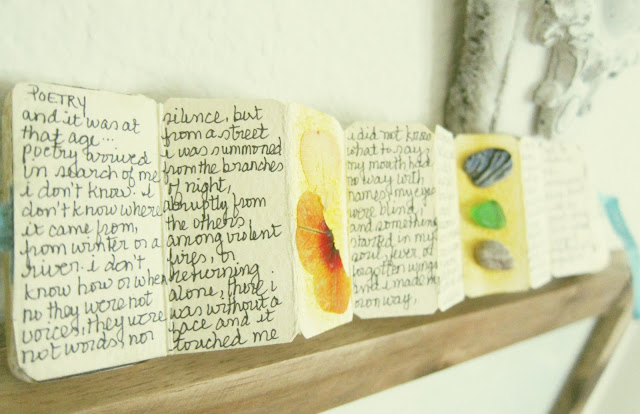 POETRY
and it was at
that age...
poetry arrived
in search of me
i don't know. i
don't know where
it came from,
from winter or a
river. i don't
know how or when
no they were not
voices, they were
not words, nor
silence, but
from a street
i was summoned
from the branches
of night,
abruptly from
the others,
among violent
fires, or
returning
alone, there i
was without a
face and it
touched me
i did not know
what to say,
my mouth had
no way with
names, my eyes
were blind,
and something
started in my
soul, fever or
forgotten wings
and i made my
own way,